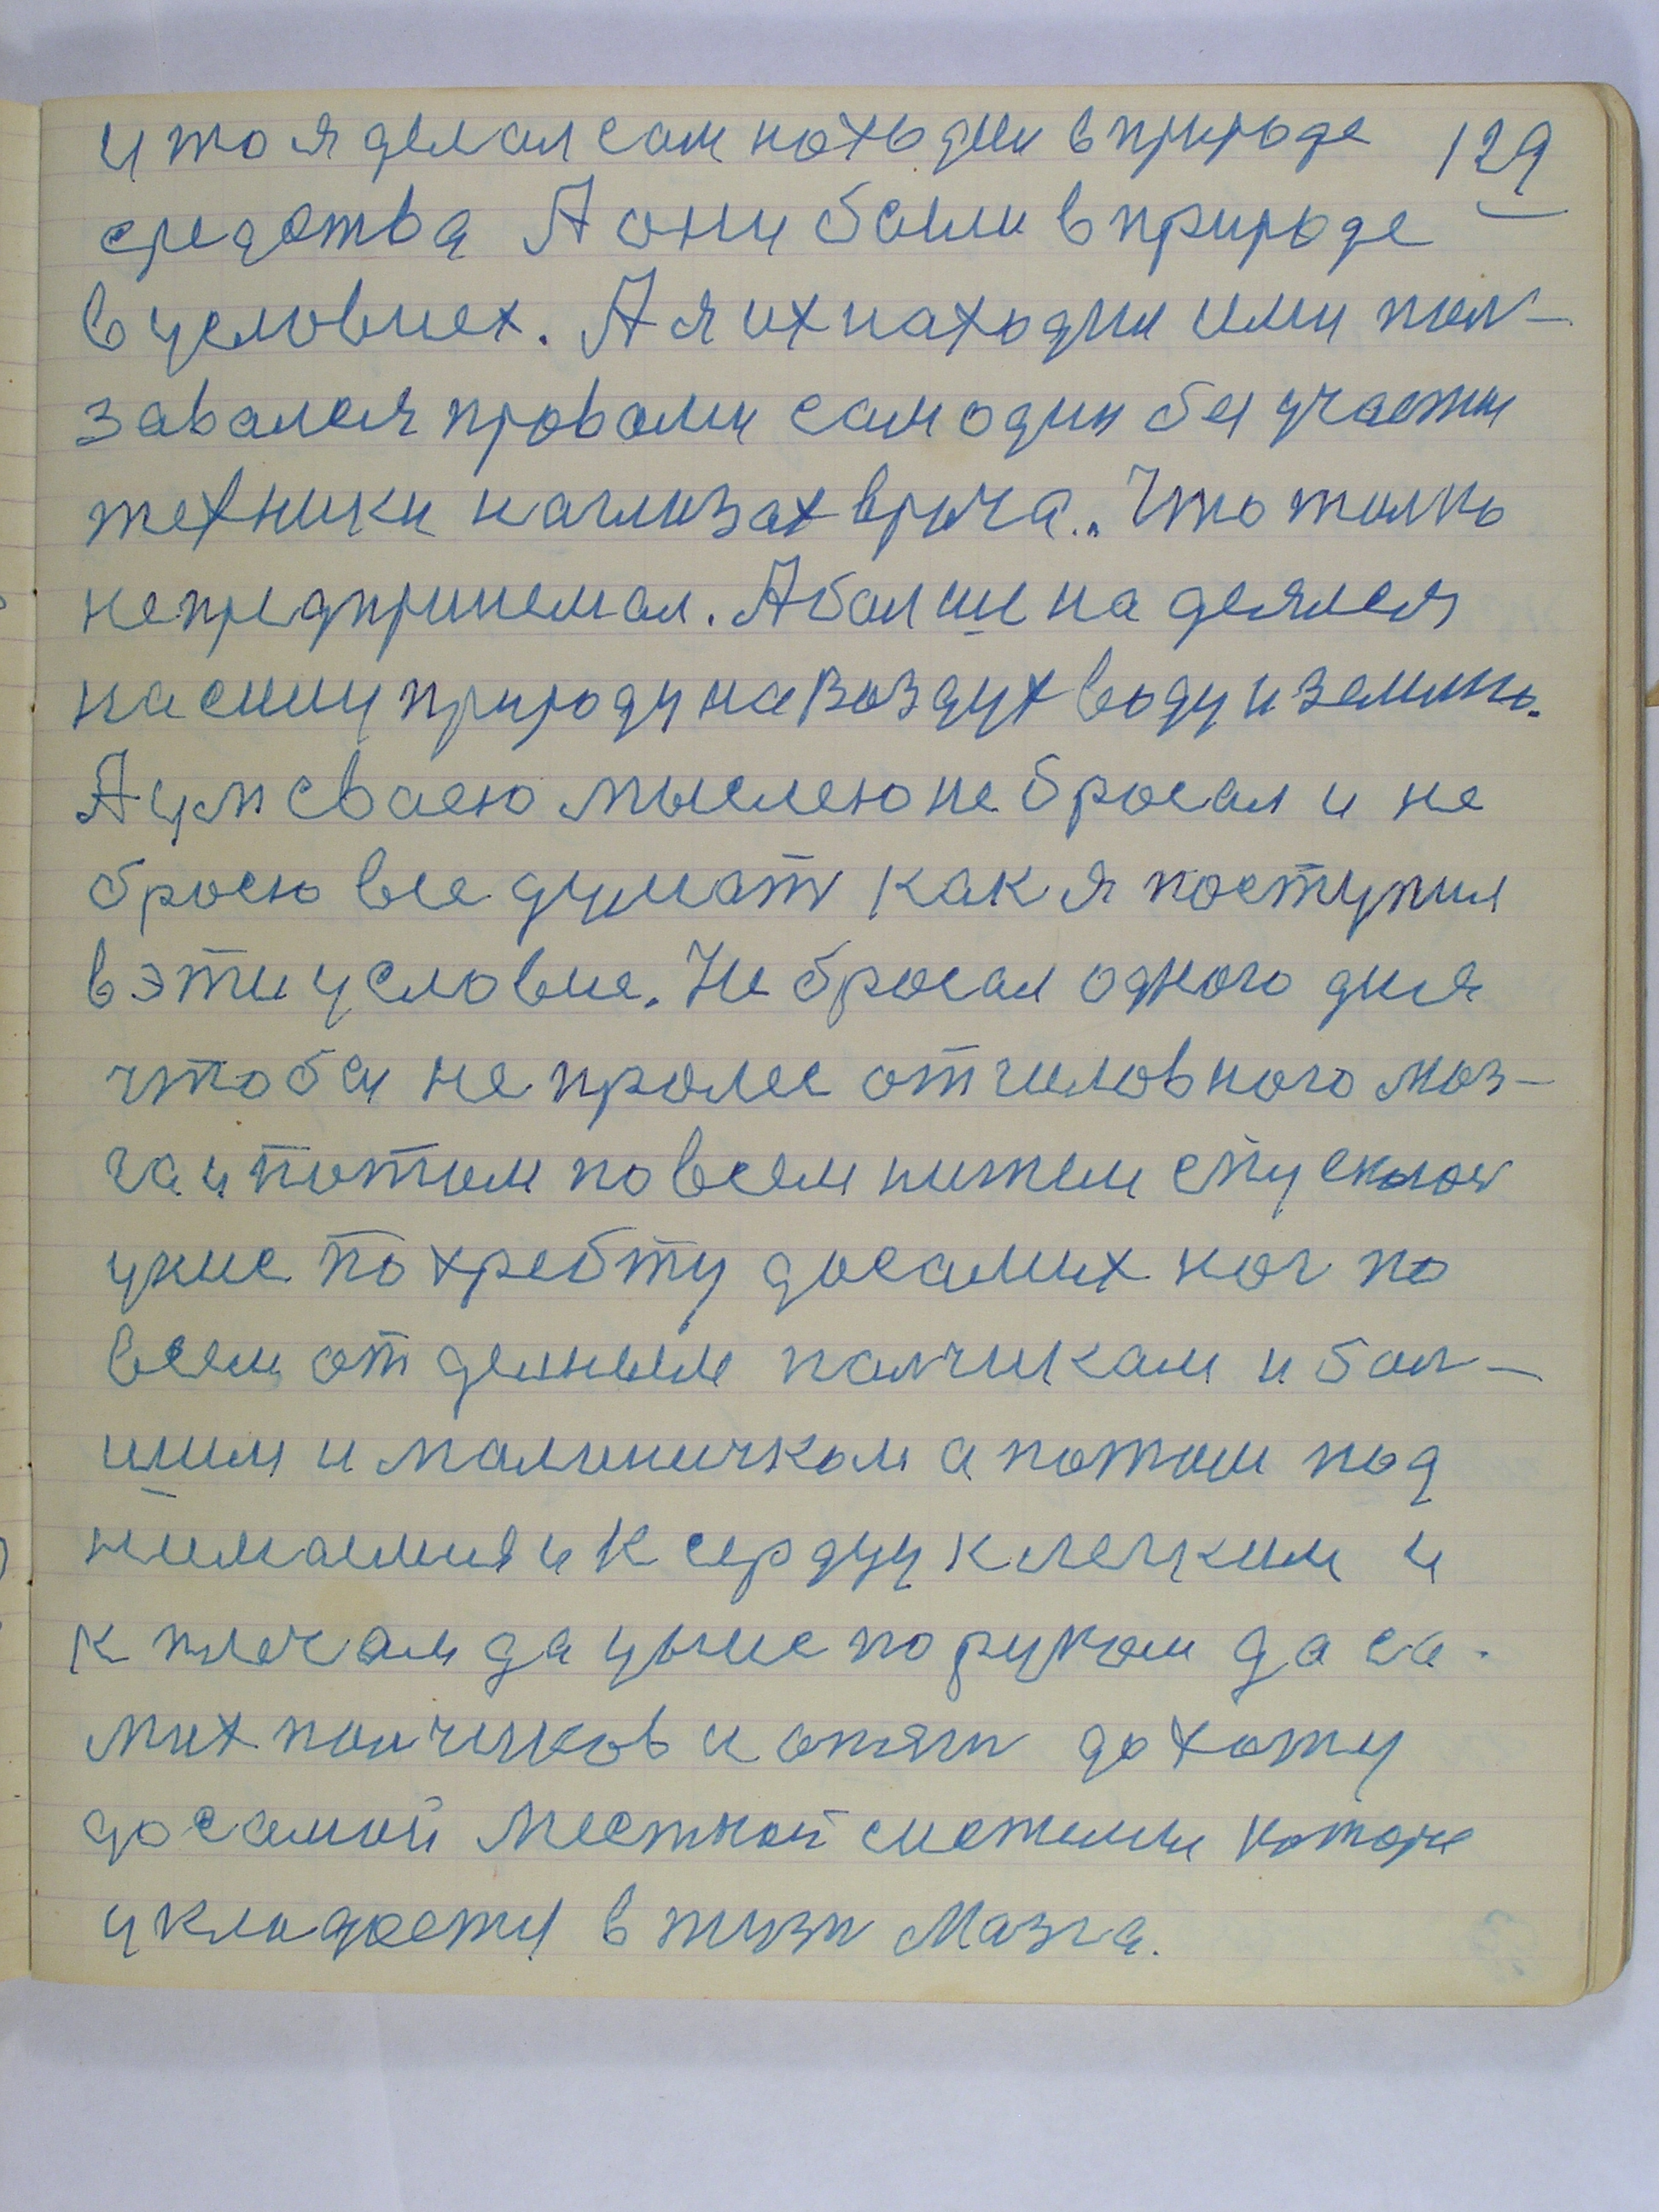 и то я делал сам находил в природе 129
средства А они были в природе
в условиех. А я их находил ими пол-
завался провами сам один без участи
техники на глазах врача.. Что толко
не предпринемал. А болше на деялся
на силу природу на воздух воду и землю.
А ум сваею мыслею не бросал и не
бросю все думат как я поступил
в эти условие. Не бросал одного дня
чтобы не пролес от головного моз-
га и потом по всем нитем
уние по хребту до самих ног по
всем отделным палчикам и бол-
шим и малиничком а потом под
нимаемия и к сердцу к легким и
к плечам да уыше по рукам да са-
мих палчиков и опять дохожу
до самой местной системи которе
укладоету в тизи Мазга.